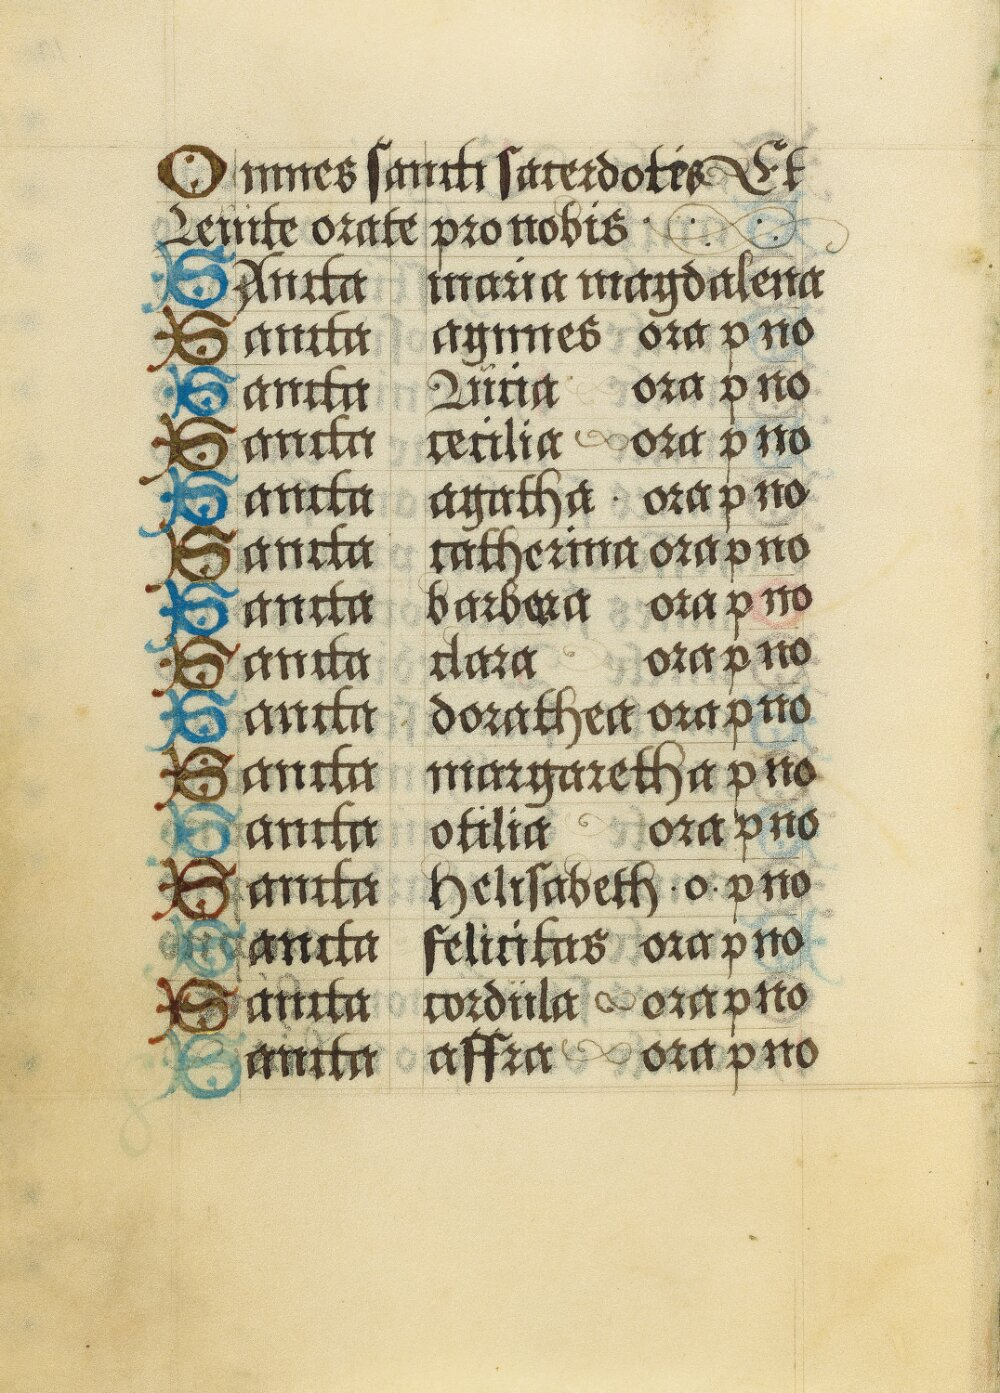 Omnes sancti sacerdotes Et
Leuite orate pro nobis
SAncta maria magdalena
Sancta agnnes ora p no
Sancta Lücia ora p no
Sancta cecilia ora p no
Sancta agatha · ora p no
Sancta catherina ora p no
Sancta barbara ora p no
Sancta clara ora p no
Sancta dorathea ora p no
Sancta margaretha p no
Sancta otilia ora p no
Sancta helisabeth · o · p no
Sancta felicitas ora p no
Sancta cordüla ora p no
Sancta affra ora p no